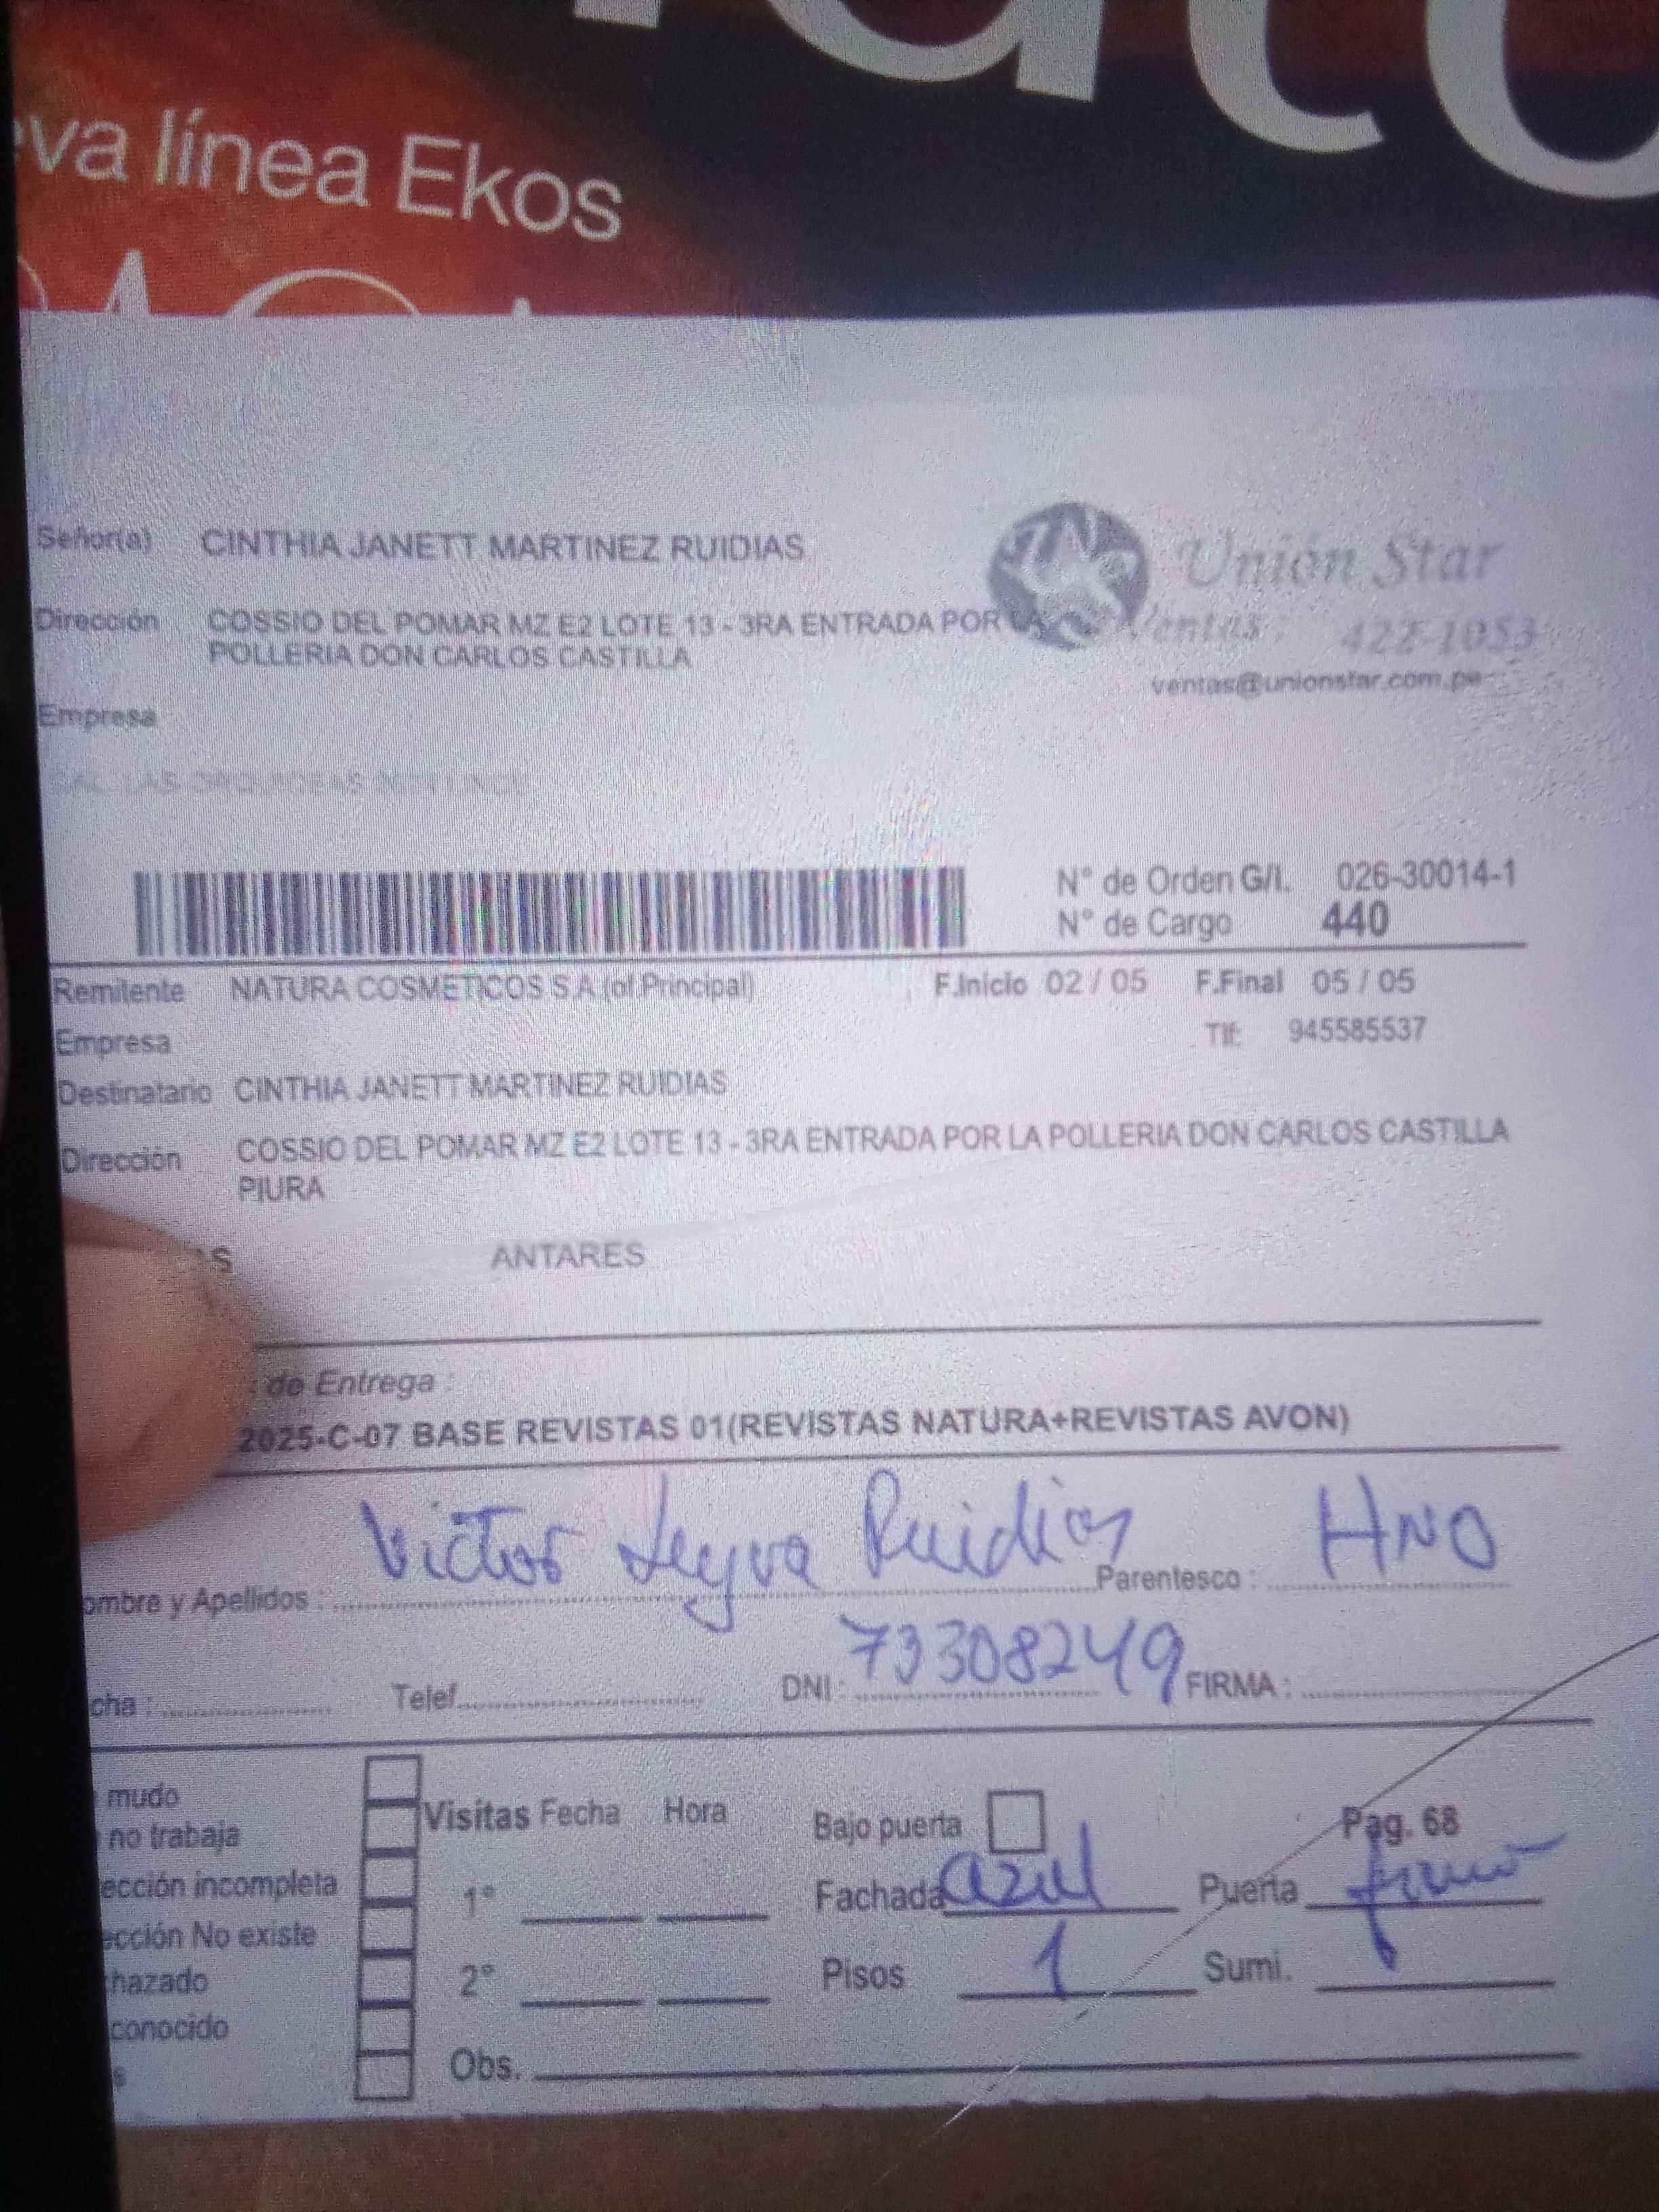 va línea Ekos
Señor(a) CINTHIA JANETT MARTINEZ RUIDIAS
Unión Star
Dirección COSSIO DEL POMAR MZ E2 LOTE 13 - 3RA ENTRADA POR LA
POLLERIA DON CARLOS CASTILLA
Ventas: 422-1053
ventas@unionstar.com.pe
Empresa
N° de Orden G/I. 026-30014-1
N° de Cargo 440
Remitente NATURA COSMETICOS S.A (of.Principal) F.Inicio 02 / 05 F.Final 05 / 05
Empresa Tlf: 945585537
Destinatario CINTHIA JANETT MARTINEZ RUIDIAS
Dirección COSSIO DEL POMAR MZ E2 LOTE 13 - 3RA ENTRADA POR LA POLLERIA DON CARLOS CASTILLA
PIURA
AS ANTARES
de Entrega :
2025-C-07 BASE REVISTAS 01(REVISTAS NATURA+REVISTAS AVON)
Victor Leyva Ruidias HNO
ombre y Apellidos : Parentesco :
cha : Telef. DNI: 73308249 FIRMA :
mudo
no trabaja
ección incompleta
ección No existe
hazado
conocido
s
Visitas Fecha Hora
1°
2°
Obs.
Bajo puerta Pag. 68
Fachada azul Puerta
Pisos 1 Sumi.